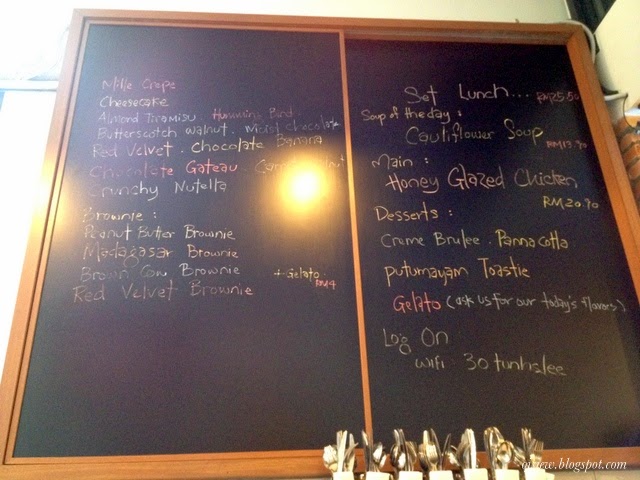 Mille Crepe
Cheesecake
Almond Tiramisu Humming Bird
Butterscotch walnut . Moist chocolate
Red Velvet . Chocolate Banana
Chocolate Gateau .
Crunchy Nutella
Brownie :
Peanut Butter Brownie
Madagasar Brownie
Brown Cow Brownie + Gelato RM4
Red Velvet Brownie
Set Lunch... RM25.50
Soup of the day :
Cauliflower Soup
RM13.90
Main :
Honey Glazed Chicken
RM20.90
Desserts :
Creme Brulee . Pannacotta
putumayam Toastie
Gelato (ask us for our today's flavors)
Log On
Wifi 30tunhslee
oiview.blogspot.com